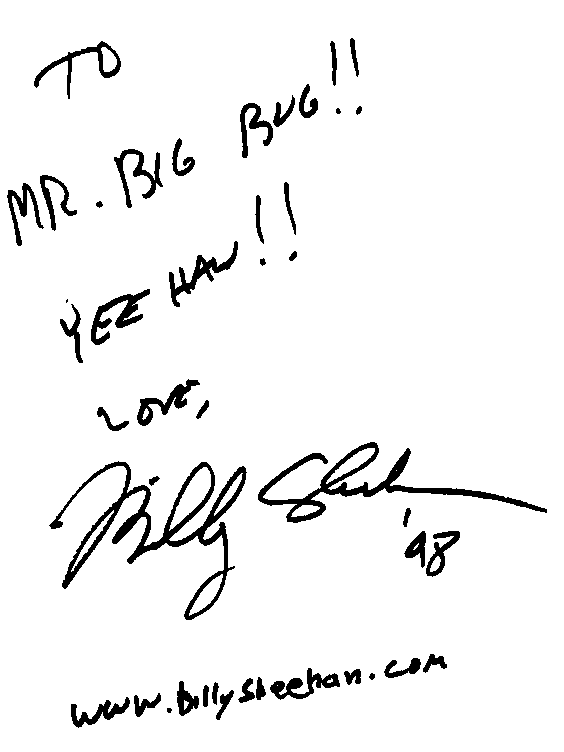 TO
MR. BIG BUG!!
YEE HAW!!
LOVE,
Billy Sheehan
'98
www.billysheehan.com